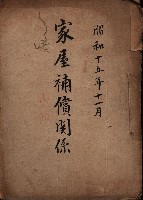 昭和十五年十一月
家屋補償関係